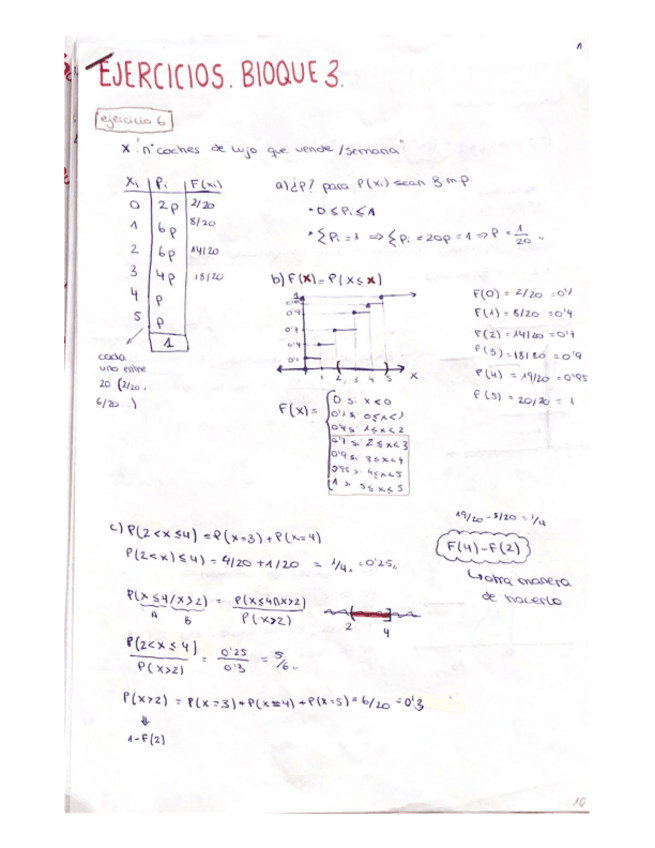 1
EJERCICIOS. BLOQUE 3.
ejercicio 6
X: "nº coches de lujo que vende /semana"
Xi | Pi | F(xi)
0 | 2p | 2/20
1 | 6p | 8/20
2 | 6p | 14/20
3 | 4p | 18/20
4 | p
5 | p
1
cada
uno entre
20 (2/20,
6/20...)
a) ¿p? para P(xi) sean 8 m.p.
· 0 ≤ Pi ≤ 1
· ΣPi = 1 ⇒ ΣPi = 20p = 1 ⇒ P = 1/20
b) F(x) = P(X ≤ x)
1
0'9
0'7
0'4
0'1
1 2 3 4 5 X
F(0) = 2/20 = 0'1
F(1) = 8/20 = 0'4
F(2) = 14/20 = 0'7
F(3) = 18/20 = 0'9
F(4) = 19/20 = 0'95
F(5) = 20/20 = 1
F(x) = 0 si x<0
0'1 si 0≤x<1
0'4 si 1≤x<2
0'7 si 2≤x<3
0'9 si 3≤x<4
0'95 si 4≤x<5
1 si 5≤x≤5
c) P(2<x≤4) = P(x=3) + P(x=4)
P(2<x)≤4) = 4/20 + 1/20 = 1/4 = 0'25
19/20 - 8/20 = 1/4
F(4)-F(2)
↳ otra manera
de hacerlo
P(x≤4/x>2) = P(x≤4∩x>2) / P(x>2)
A B
2 4
P(2<x≤4] / P(x>2) = 0'25 / 0'3 = 5/6
P(x>2) = P(x=3) + P(x=4) + P(x=5) = 6/20 = 0'3
⇓
1-F(2)
10